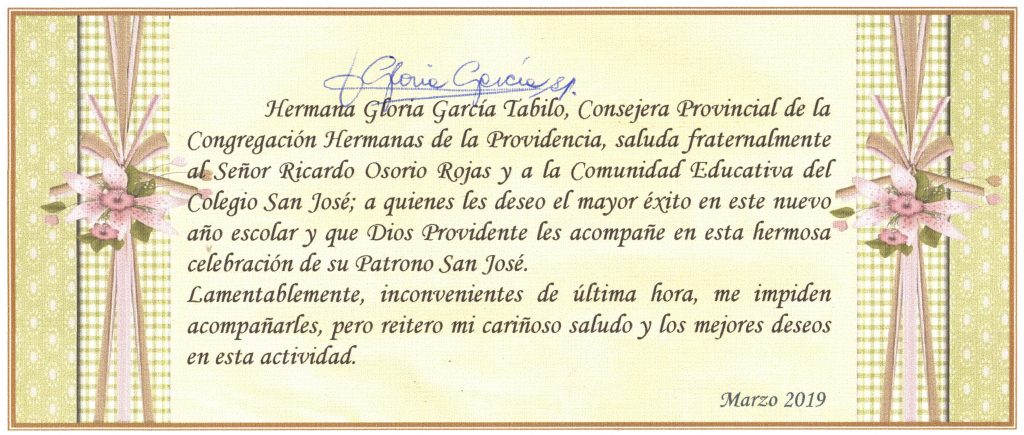 Gloria García sp.
Hermana Gloria García Tabilo, Consejera Provincial de la
Congregación Hermanas de la Providencia, saluda fraternalmente
al Señor Ricardo Osorio Rojas y a la Comunidad Educativa del
Colegio San José; a quienes les deseo el mayor éxito en este nuevo
año escolar y que Dios Providente les acompañe en esta hermosa
celebración de su Patrono San José.
Lamentablemente, inconvenientes de última hora, me impiden
acompañarles, pero reitero mi cariñoso saludo y los mejores deseos
en esta actividad.
Marzo 2019